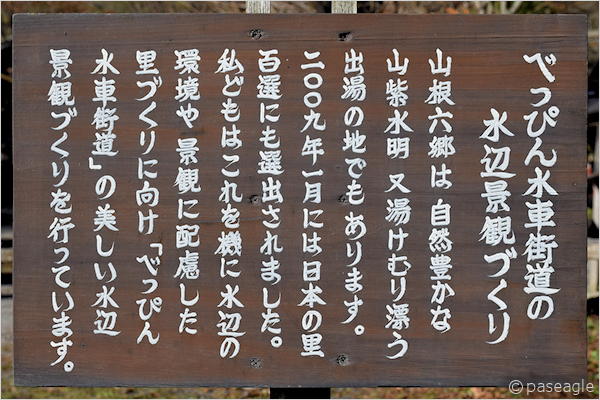 べっぴん水車街道の
水辺景観づくり
山根六郷は 自然豊かな
山紫水明 又湯けむり漂う
出湯の地でも あります。
二〇〇九年一月には日本の里
百選にも選出されました。
私どもはこれを機に水辺の
環境や 景観に配慮した
里づくりに向け「べっぴん
水車街道」の美しい水辺
景観づくりを行っています。
© paseagle